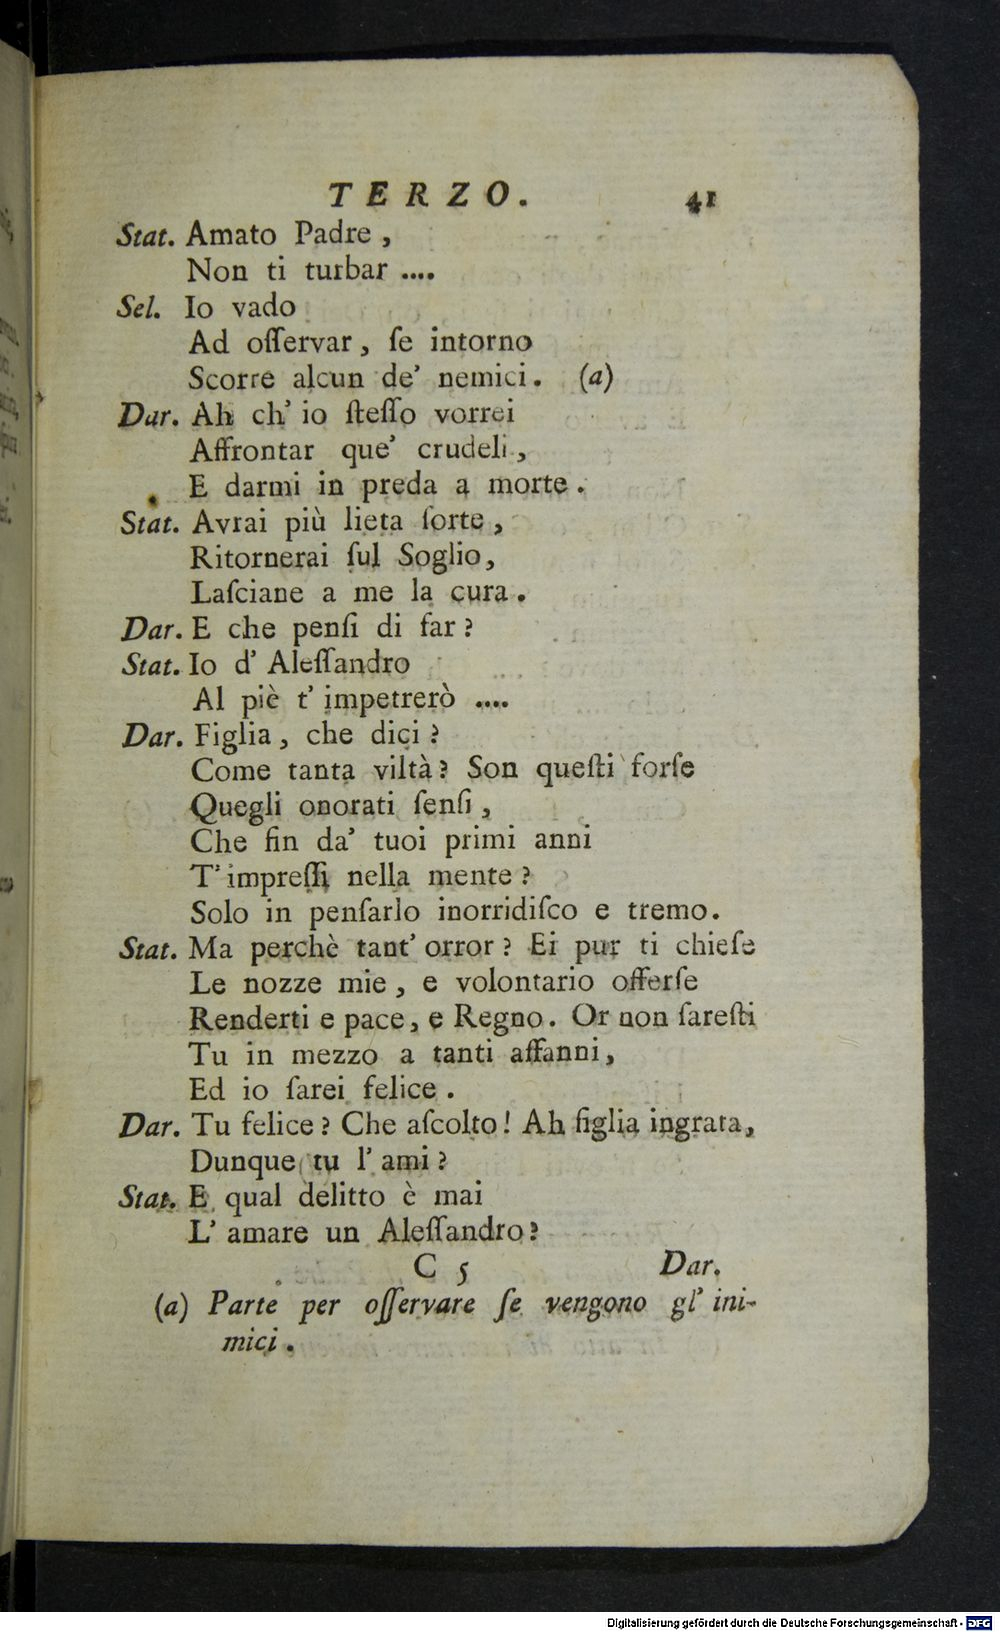 TERZO. 41
Stat. Amato Padre ,
Non ti turbar ....
Sel. Io vado
Ad oſſervar , ſe intorno
Scorre alcun de' nemici . (a)
Dar. Ah ch' io ſteſſo vorrei
Affrontar que' crudeli ,
E darmi in preda a morte .
Stat. Avrai più lieta ſorte ,
Ritornerai ſul Soglio ,
Laſciane a me la cura .
Dar. E che penſi di far ?
Stat. Io d' Aleſſandro
Al piè t' impetrerò ....
Dar. Figlia , che dici ?
Come tanta viltà ? Son queſti forſe
Quegli onorati ſenſi ,
Che fin da' tuoi primi anni
T' impreſſi nella mente ?
Solo in penſarlo inorridiſco e tremo .
Stat. Ma perchè tant' orror ? Ei pur ti chieſe
Le nozze mie , e volontario offerſe
Renderti e pace , e Regno . Or non ſareſti
Tu in mezzo a tanti affanni ,
Ed io ſarei felice .
Dar. Tu felice ? Che aſcolto ! Ah figlia ingrata ,
Dunque tu l' ami ?
Stat. E qual delitto è mai
L' amare un Aleſſandro ?
C 5 Dar.
(a) Parte per oſſervare ſe vengono gl' ini-
mici .
Digitalisierung gefördert durch die Deutsche Forschungsgemeinschaft - DFG